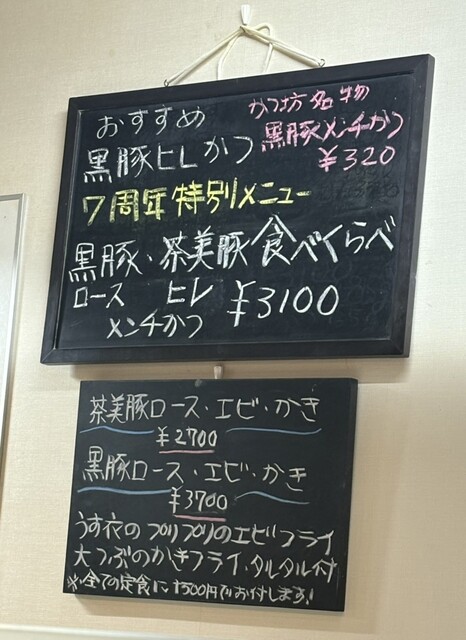 おすすめ
黒豚ヒレかつ
かつ坊名物
黒豚メンチかつ
¥320
7周年特別メニュー
黒豚・茶美豚食べくらべ
ロース ヒレ ¥3100
メンチかつ
茶美豚ロース・エビ・かき
¥2700
黒豚ロース・エビ・かき
¥3700
うす衣のプリプリのエビフライ
大つぶのかきフライ、タルタル付
※全ての定食に+500円でお付します!